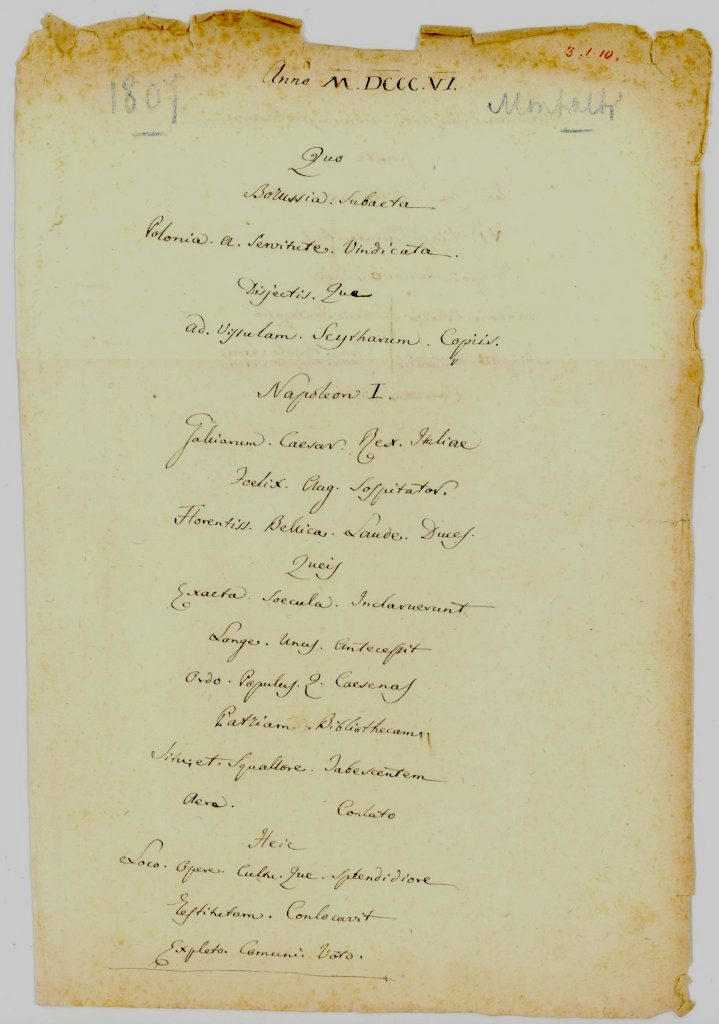 3.1.10.
Anno M.DCCC.VI.
1807
Montalti
Quo
Borussia. Subacta
Polonia. A. Servitute. Vindicata.
Disjectis. Que
Ad. Vistulam. Scytharum. Copiis.
Napoleon I.
Galliarum. Caesar. Rex. Italiae
Foelix. Aug. Sospitator.
Florentiss. Bellica. Laude. Duces.
Queis
Exacta. Soecula. Inclaruerunt
Longe. Unus. Antecessit
Ordo. Populus. Q. Caesenas
Patriam. Bibliothecam
Situ. et. Squallore. Tabescentem
Aere. Conlato
Heic
Loco. Opere. Cultu. Que. Splendidiore
Restitutam. Conlocavit
Expleto. Comuni. Voto.